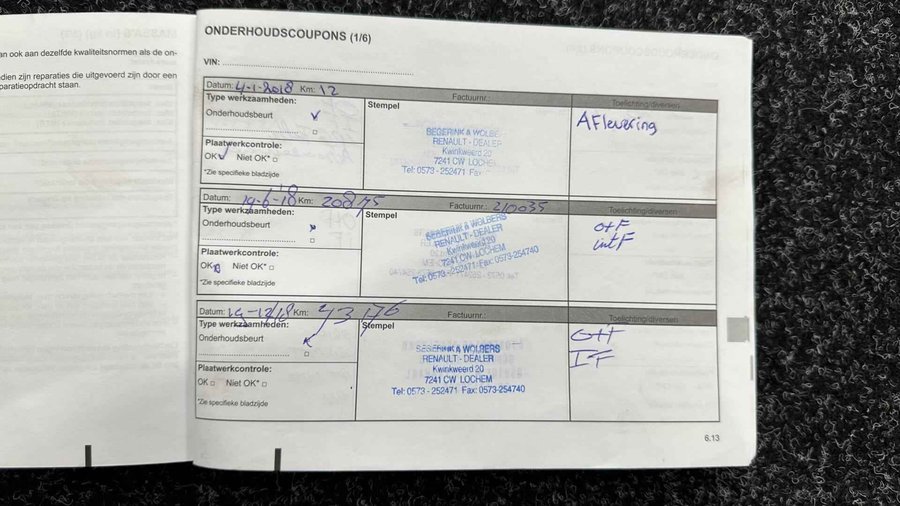 an ook aan dezelfde kwaliteitsnormen als de on-
dien zijn reparaties die uitgevoerd zijn door een
paratieopdracht staan.
ONDERHOUDSCOUPONS (1/6)
VIN:
Datum: 4-1-2018 Km: 12 Factuurnr.: Toelichting/diversen
Type werkzaamheden:
Stempel
Aflevering
Onderhoudsbeurt
BEGERINK & WOLBE
RENAULT - DEALER
Kwinkweerd 20
7241 CW LOCHEM
Tel: 0573 - 252471 Fax
Plaatwerkcontrole:
OK Niet OK*
*Zie specifieke bladzijde
Datum: 19-6-18 Km: 20875 Factuurnr.: 210035 Toelichting/diversen
Type werkzaamheden:
Stempel
Onderhoudsbeurt
BEGERINK & WOLBERS
RENAULT - DEALER
Kwinkweerd 20
7241 CW LOCHEM
Tel: 0573 - 252471 Fax: 0573-254740
Plaatwerkcontrole:
OK Niet OK*
*Zie specifieke bladzijde
Datum: 19-12/18 Km: 43176 Factuurnr.: Toelichting/diversen
Type werkzaamheden:
Stempel
Onderhoudsbeurt
BEGERINK & WOLBERS
RENAULT - DEALER
Kwinkweerd 20
7241 CW LOCHEM
Tel: 0573 - 252471 Fax: 0573-254740
Plaatwerkcontrole:
OK Niet OK*
*Zie specifieke bladzijde
6.13